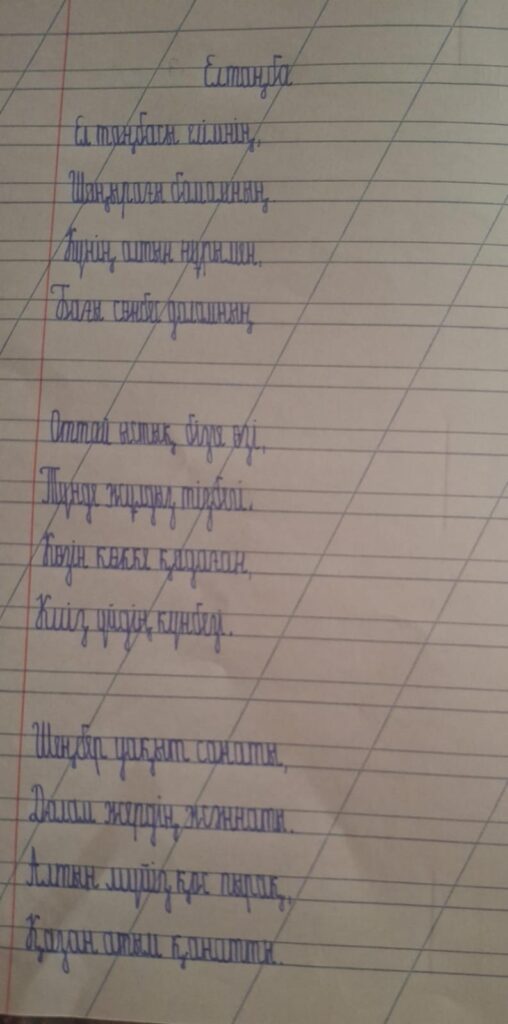 Елтаңба
Ел таңбасы елімнің,
Шаңырағы баламның
Күнің алтын нұрымен,
Бағы сөнбес даламның
Оттай ыстық бізге өзі,
Түнде жұлдыз тізбегі.
Көзін көкке қадаған,
Киіз үйдің күнбезі.
Шеңбер уақыт санаты,
Далам жердің жәннаты.
Алтын мүйіз қос пырақ,
Қазан атым қанатты.